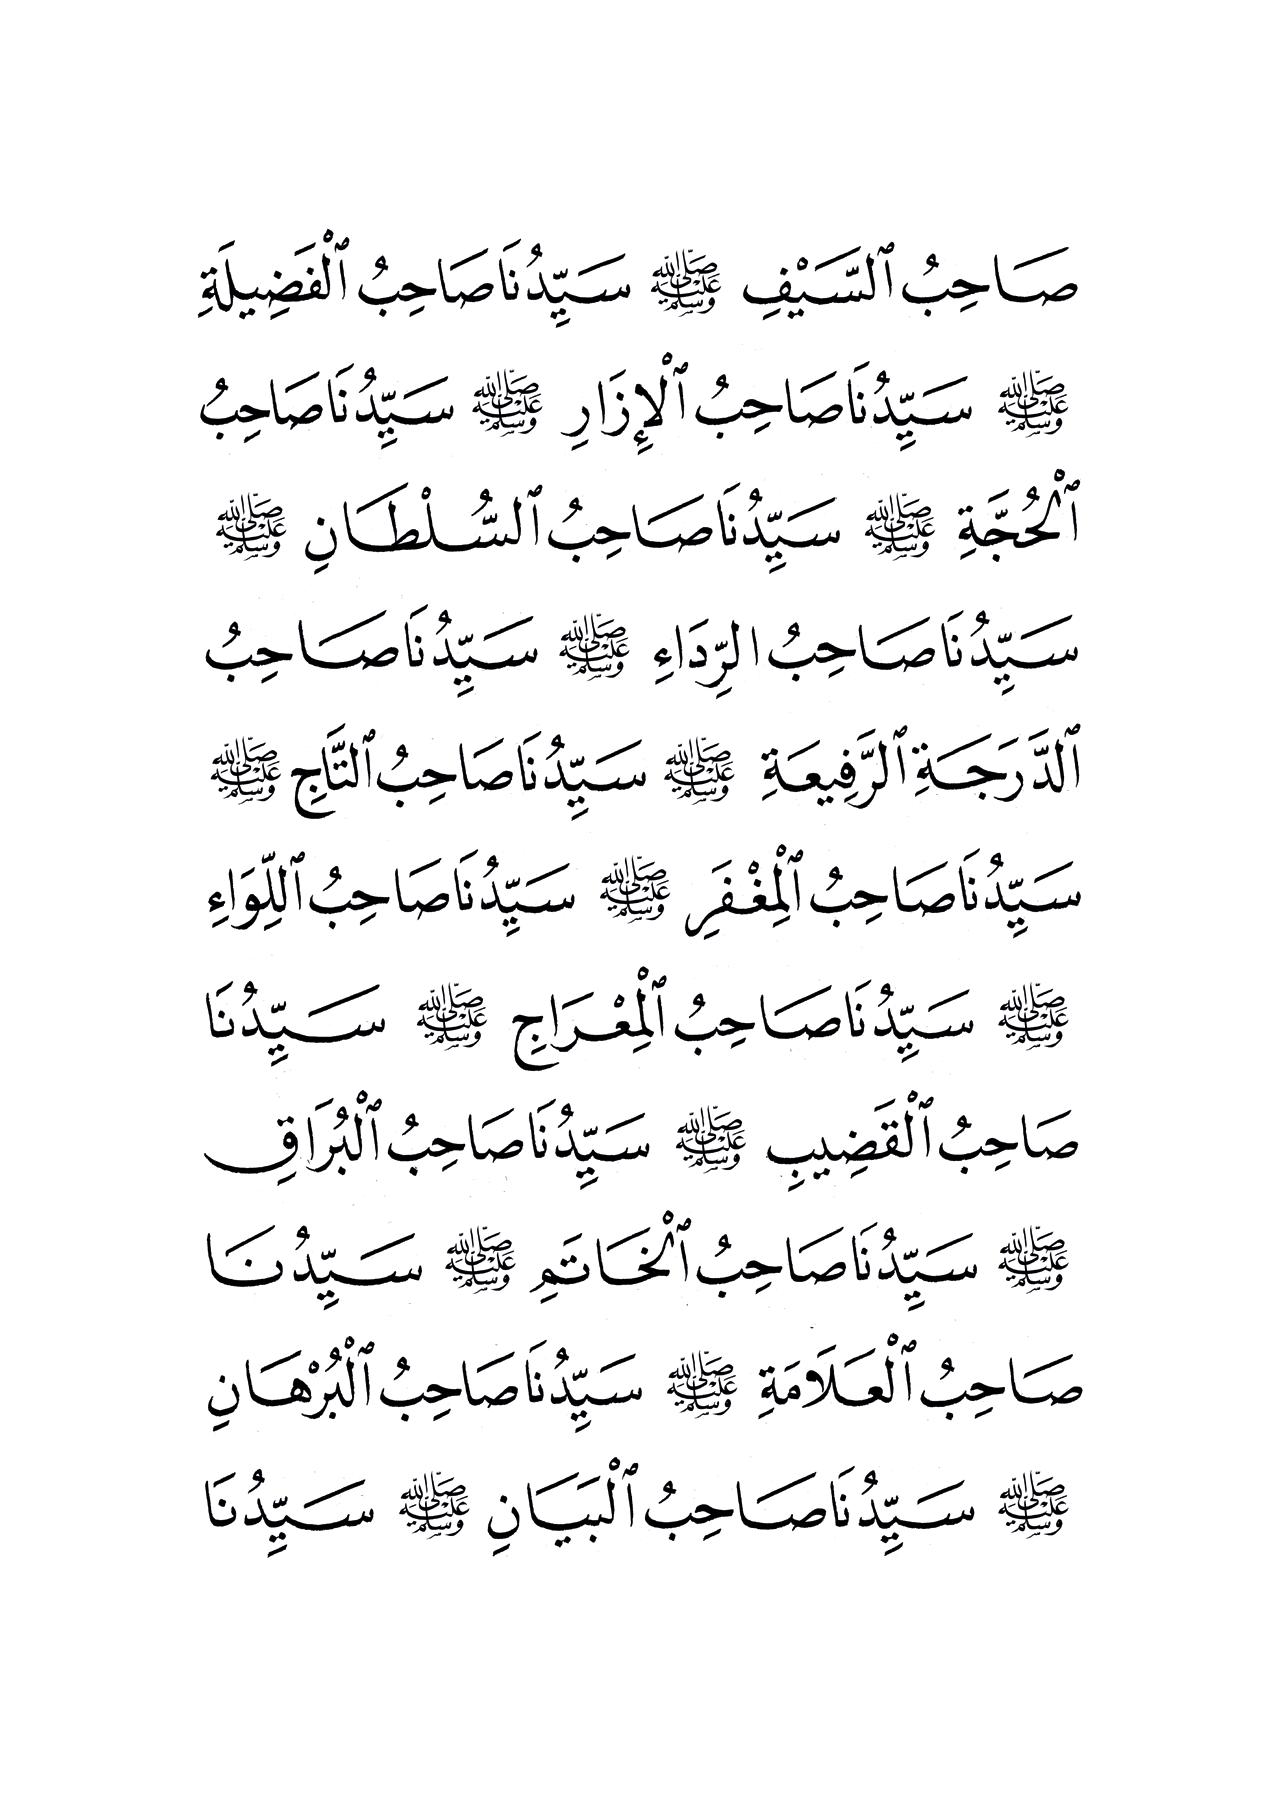 صَاحِبُ ٱلسَّيْفِ ﷺ سَيِّدُنَا صَاحِبُ ٱلْفَضِيلَةِ
ﷺ سَيِّدُنَا صَاحِبُ ٱلْإِزَارِ ﷺ سَيِّدُنَا صَاحِبُ
ٱلْحُجَّةِ ﷺ سَيِّدُنَا صَاحِبُ ٱلسُّلْطَانِ ﷺ
سَيِّدُنَا صَاحِبُ الرِّدَاءِ ﷺ سَيِّدُنَا صَاحِبُ
ٱلدَّرَجَةِ ٱلرَّفِيعَةِ ﷺ سَيِّدُنَا صَاحِبُ ٱلتَّاجِ ﷺ
سَيِّدُنَا صَاحِبُ ٱلْمِغْفَرِ ﷺ سَيِّدُنَا صَاحِبُ ٱللِّوَاءِ
ﷺ سَيِّدُنَا صَاحِبُ ٱلْمِعْرَاجِ ﷺ سَيِّدُنَا
صَاحِبُ ٱلْقَضِيبِ ﷺ سَيِّدُنَا صَاحِبُ ٱلْبُرَاقِ
ﷺ سَيِّدُنَا صَاحِبُ ٱلْخَاتَمِ ﷺ سَيِّدُنَا
صَاحِبُ ٱلْعَلَامَةِ ﷺ سَيِّدُنَا صَاحِبُ ٱلْبُرْهَانِ
ﷺ سَيِّدُنَا صَاحِبُ ٱلْبَيَانِ ﷺ سَيِّدُنَا